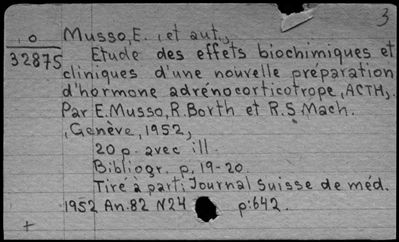 3
O
32875
Musso, E. (et aut.,
Etude des effets biochimiques et
cliniques d'une nouvelle préparation
d'hormone adrénocorticotrope, ACTH,.
Par E. Musso, R. Borth et R.S. Mach.
(Genève, 1952,
20 p. avec ill.
Bibliogr. p. 19-20.
Tiré à part: Journal Suisse de méd.
1952 An. 82 N24 p: 642.
+